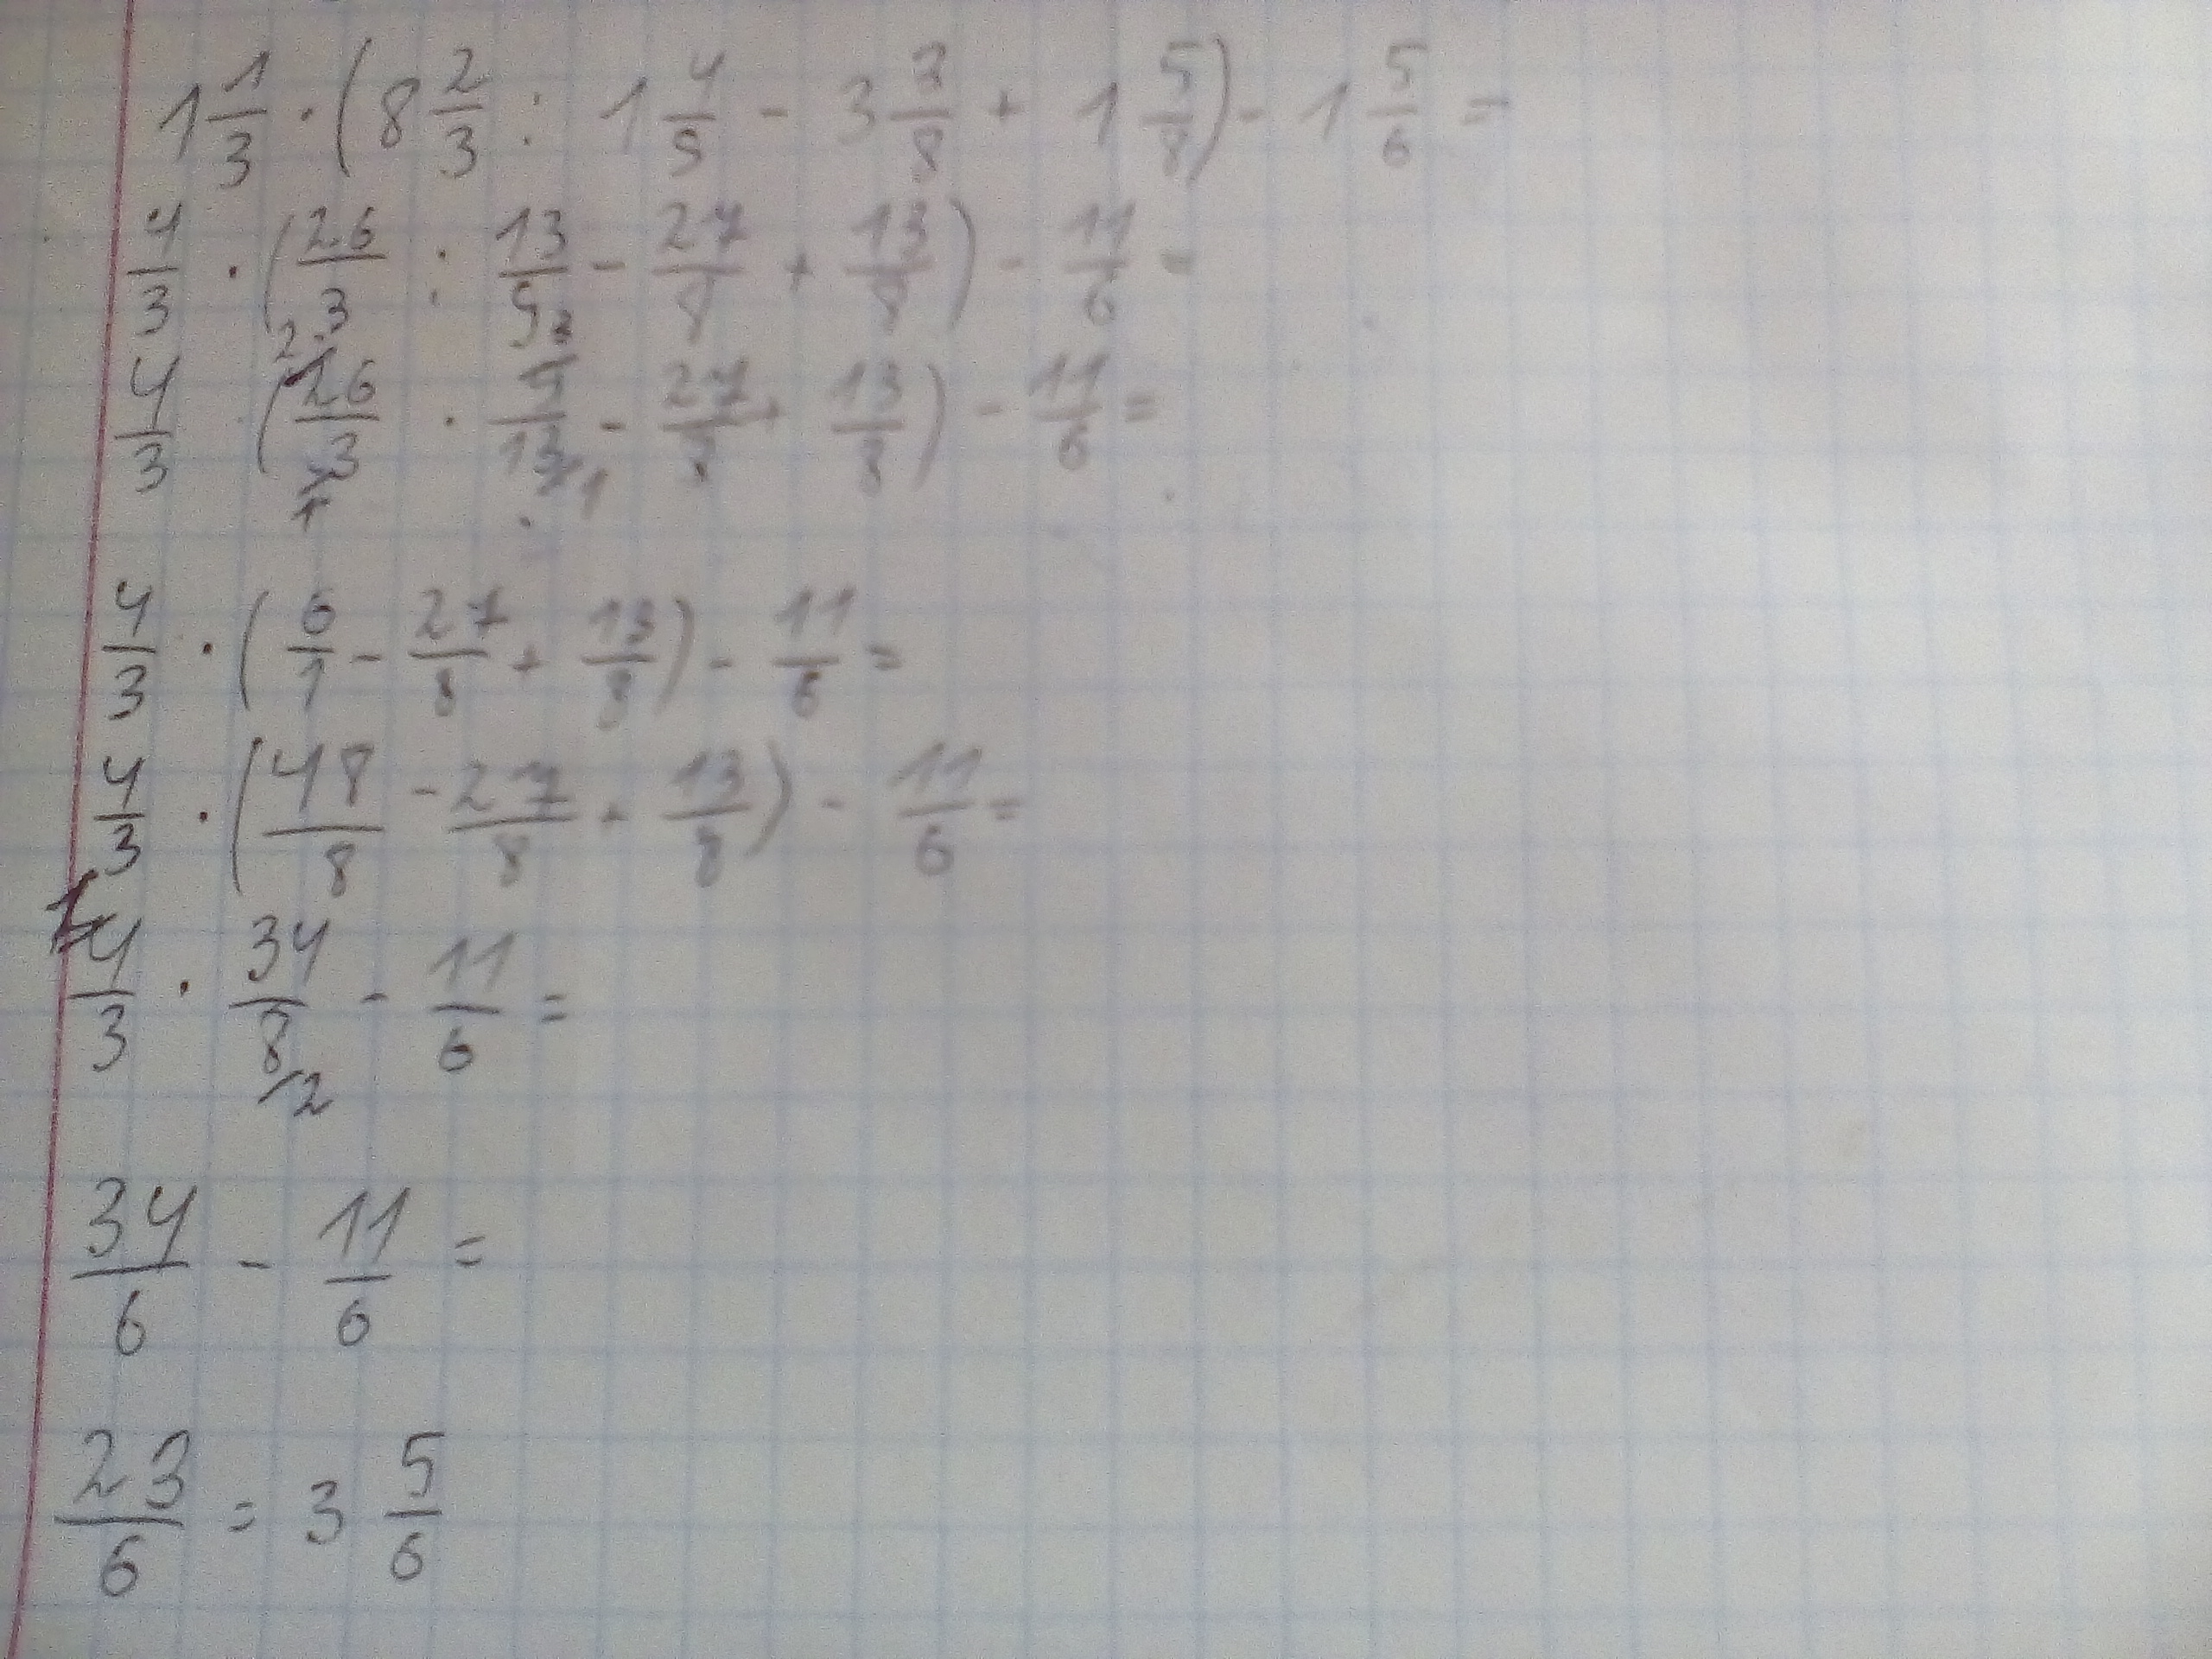 1 1/3 · (8 2/3 : 1 4/9 - 3 3/8 + 1 5/8) - 1 5/6 =
4/3 · (26/3 : 13/9 - 27/8 + 13/8) - 11/6 =
4/3 · (26/3 · 9/13 - 27/8 + 13/8) - 11/6 =
4/3 · (6/1 - 27/8 + 13/8) - 11/6 =
4/3 · (48/8 - 27/8 + 13/8) - 11/6 =
4/3 · 34/8 - 11/6 =
34/6 - 11/6 =
23/6 = 3 5/6